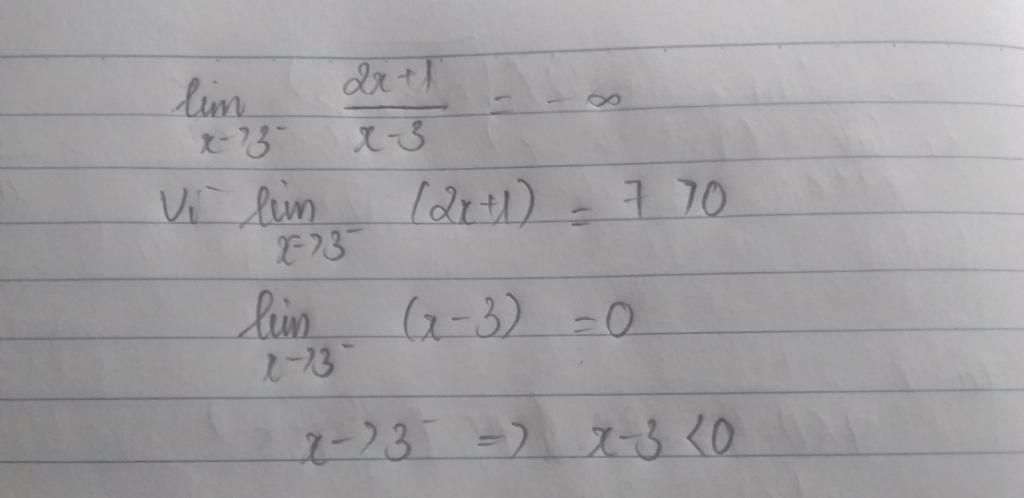 lim x->3⁻ (2x+1)/(x-3) = -∞
Vì lim x->3⁻ (2x+1) = 7 >0
lim x->3⁻ (x-3) =0
x->3⁻ => x-3 <0